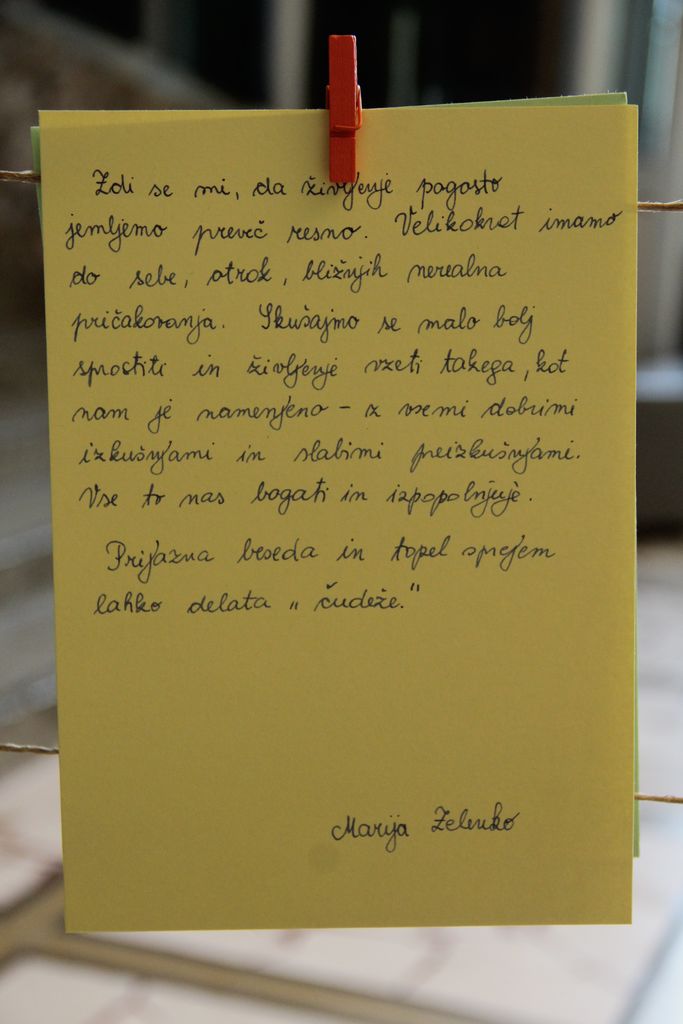 Zdi se mi, da življenje pogosto
jemljemo preveč resno. Velikokrat imamo
do sebe, otrok, bližnjih nerealna
pričakovanja. Skušajmo se malo bolj
sprostiti in življenje vzeti takega, kot
nam je namenjeno - z vsemi dobrimi
izkušnjami in slabimi preizkušnjami.
Vse to nas bogati in izpopolnjuje.
Prijazna beseda in topel sprejem
lahko delata „ čudeže."
Marija Zelenko